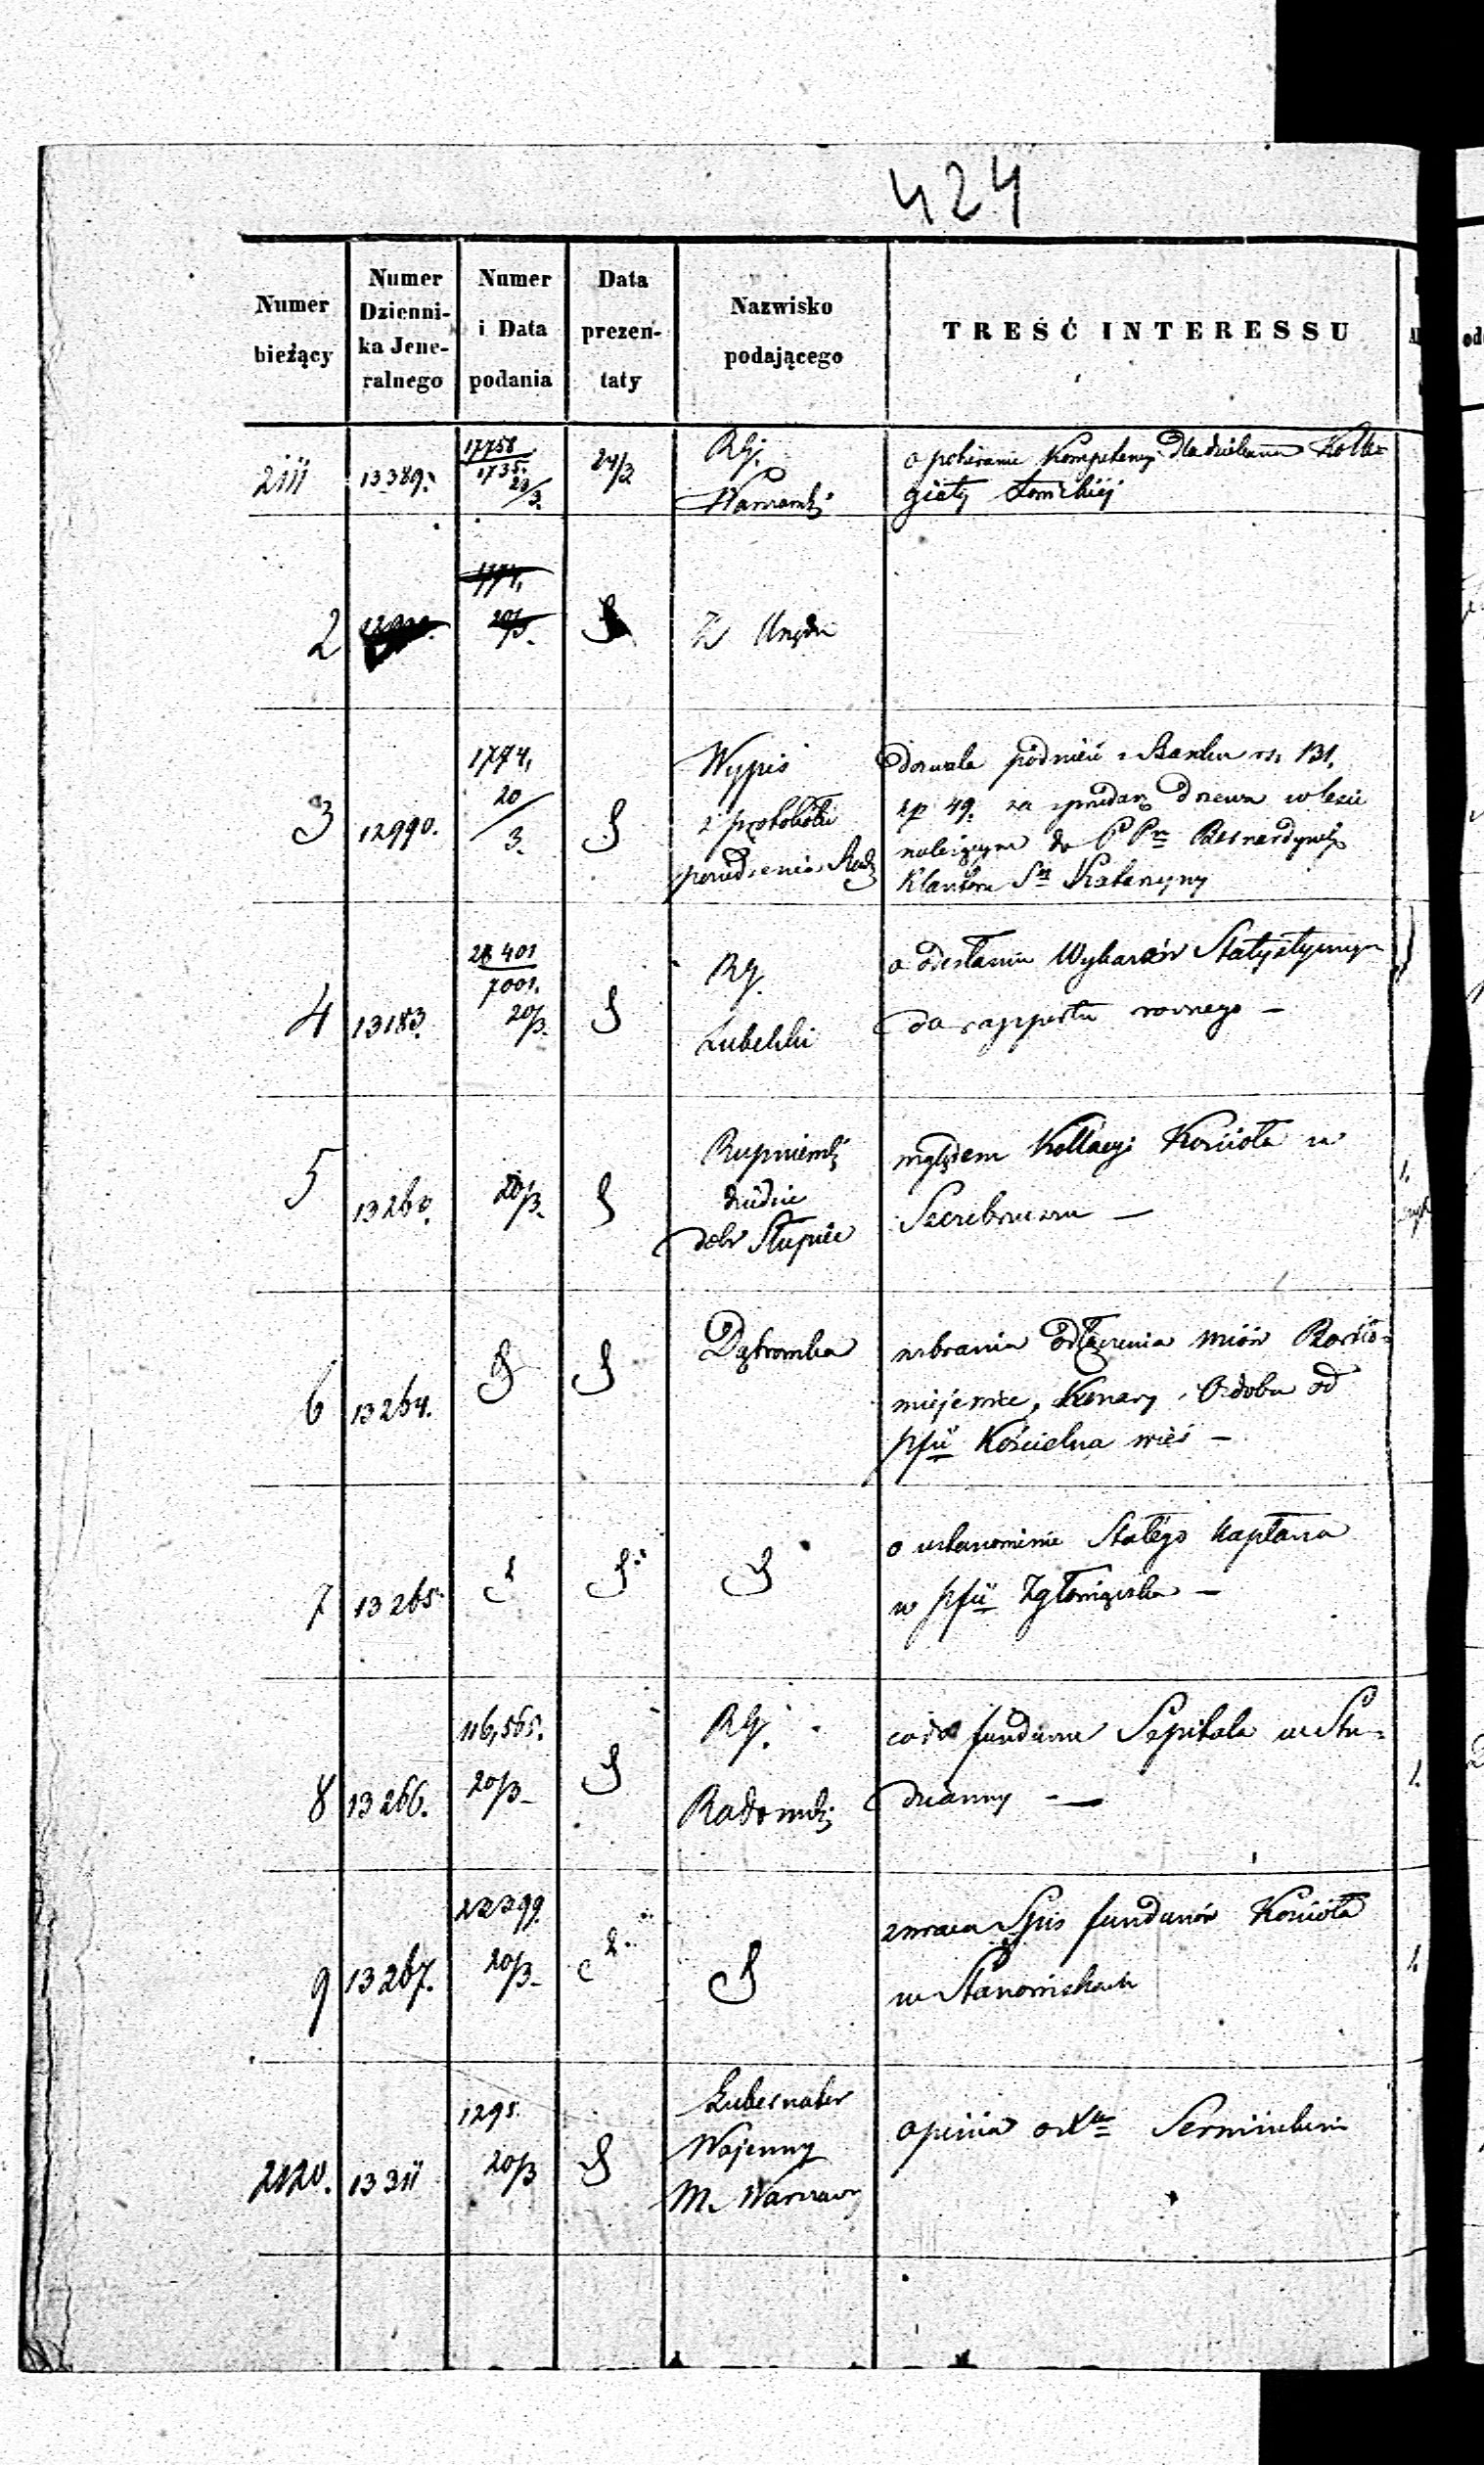 424
Numer bieżący
Numer Dzienni-ka Jene-ralnego
Numer i Data podania
Data prezen-taty
Nazwisko podającego
TREŚĆ INTERESSU
2111 13389. 17758 1735. 20/3. 24/3 RG. Warszawski
o pobieranie Kompetencyi dla dziekana Kolle-
giaty
2 1774, 20/3. Z Urzędu
3 12990. 1774, 20/3. Wypis
z protokółu
posiedzenia Rady
dozwala podnieść z Banku rs. 131.
kp 49. za sprzedaż drzewa w lesie
należącym do PP Bernardynów
Klasztoru Katarzyny
4 13183. 28401 7001. 20/3. RG.
Lubelski
o odesłanie Wykazów Statystycznych
do rapportu rocznego —
5 13260. 20/3.
dziedzic
dobr Słupice
względem Kollacyi Kościoła w
6 13264. Dąbrowska
wzbrania odłączenia wsiów
od
pfii Kościelna wieś —
7 13265.
o ustanowienie Stałego Kapłana
w pfii Zgłowiączka —
8 13266. 116,565. 20/3 RG.
Radomski
co do funduszu Szpitala w Stu-
dzianny —
9 13267. 22299. 20/3
zwraca Spis funduszów Kościoła
w Stanowiskach
2120. 13311 1295. 20/3 Gubernator
Wojenny
M. Warszawy
opinia o